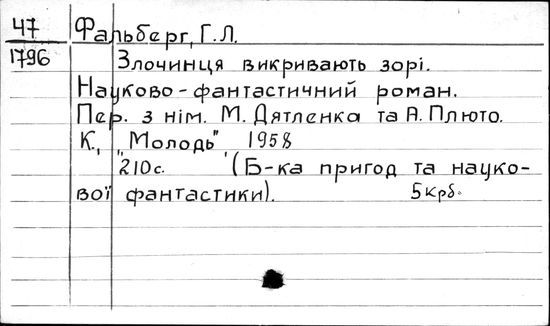 47 Фальберг, Г.Л.
1796 Злочинця викривають зорі.
Науково-фантастичний роман.
Пер. з нім. М. Дятленка та А. Плюто.
К., „Молодь", 1958
210с. (Б-ка пригод та науко-
вої фантастики). 5крб.